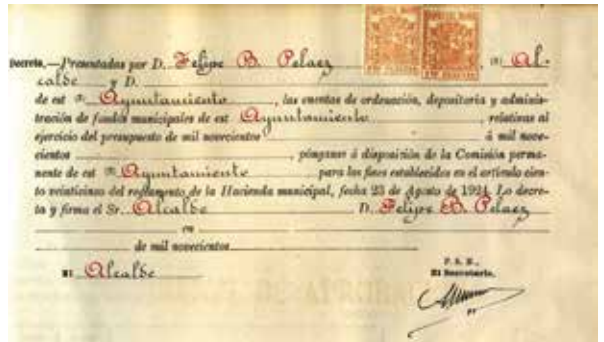 Decreto.—Presentadas por D. Felipe B. Pelaez, el Al-
calde y D.
de est a Ayuntamiento, las cuentas de ordenación, depositaría y adminis-
tración de fondos municipales de est Ayuntamiento, relativas al
ejercicio del presupuesto de mil novecientos á mil nove-
cientos, pónganse á disposición de la Comisión perma-
nente de est Ayuntamiento para los fines establecidos en el artículo cien-
to veinticinco del reglamento de la Hacienda municipal, fecha 23 de Agosto de 1924. Lo decre-
ta y firma el Sr. Alcalde D. Felipe B. Pelaez
en
de mil novecientos
El Alcalde
P. S. M.,
El Secretario,